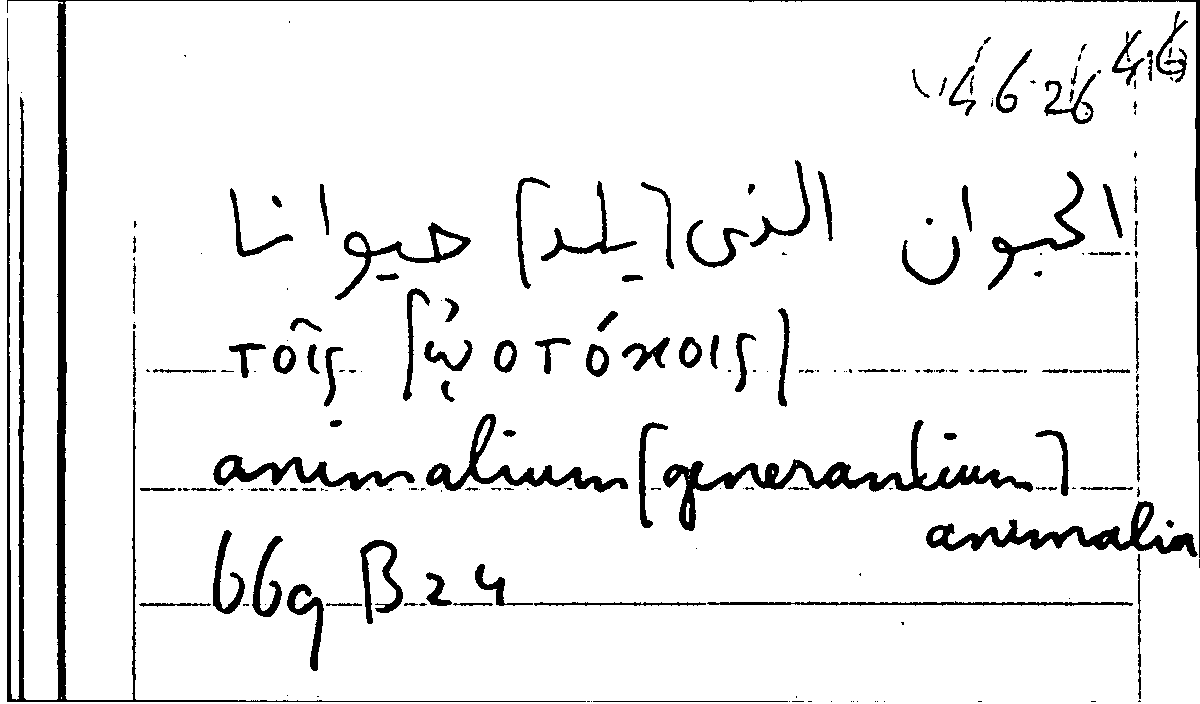 46 26 4,6
الحيوان الذى [يلد] حيوانا
τοῖς [ᾠοτόκοις]
animalium [generantium]
animalia
669 B 24